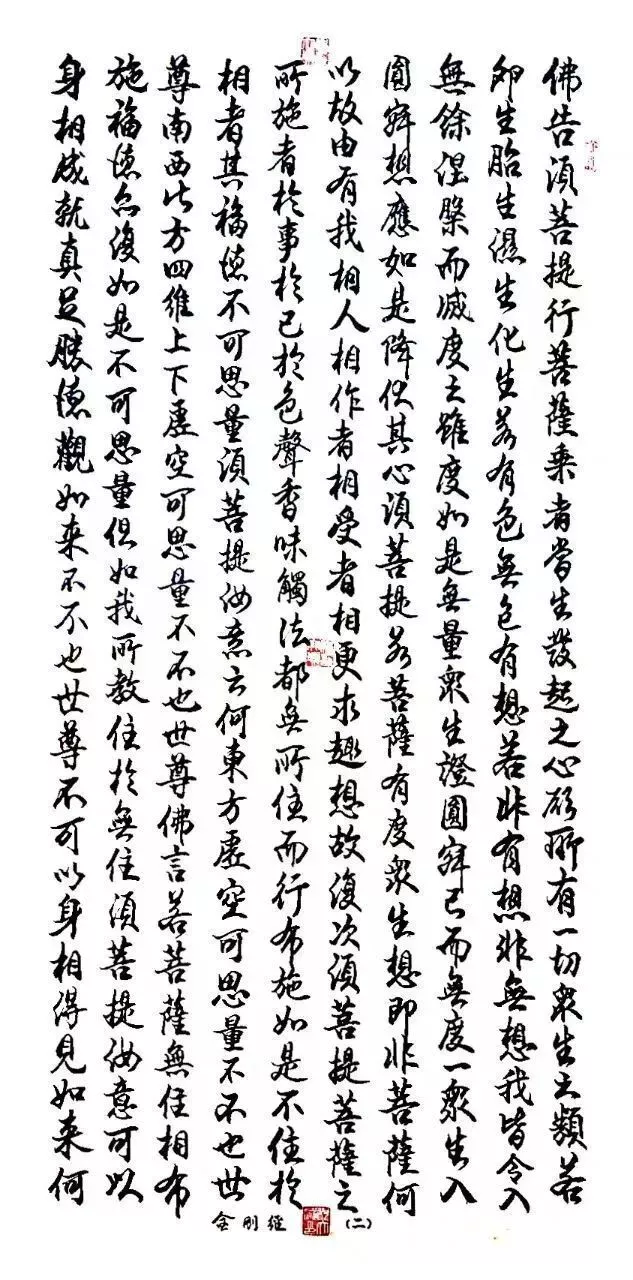 佛告須菩提行菩薩乘者當生發起之心於所有一切眾生之類若
卵生胎生濕生化生若有色無色有想若非有想非無想我皆令入
無餘涅槃而滅度之雖度如是無量眾生證圓寂已而無度一眾生入
圓寂想應如是降伏其心須菩提若菩薩有度眾生想即非菩薩何
以故由有我相人相作者相受者相更求趣想故復次須菩提菩薩之
所施者於事於己於色聲香味觸法都無所住而行布施如是不住於
相者其福德不可思量須菩提汝意云何東方虛空可思量不不也世
尊南西北方四維上下虛空可思量不不也世尊佛言若菩薩無住相布
施福德亦復如是不可思量但如我所教住於無住須菩提汝意可以
身相成就真足勝德觀如來不不也世尊不可以身相得見如來何
金剛經
(二)